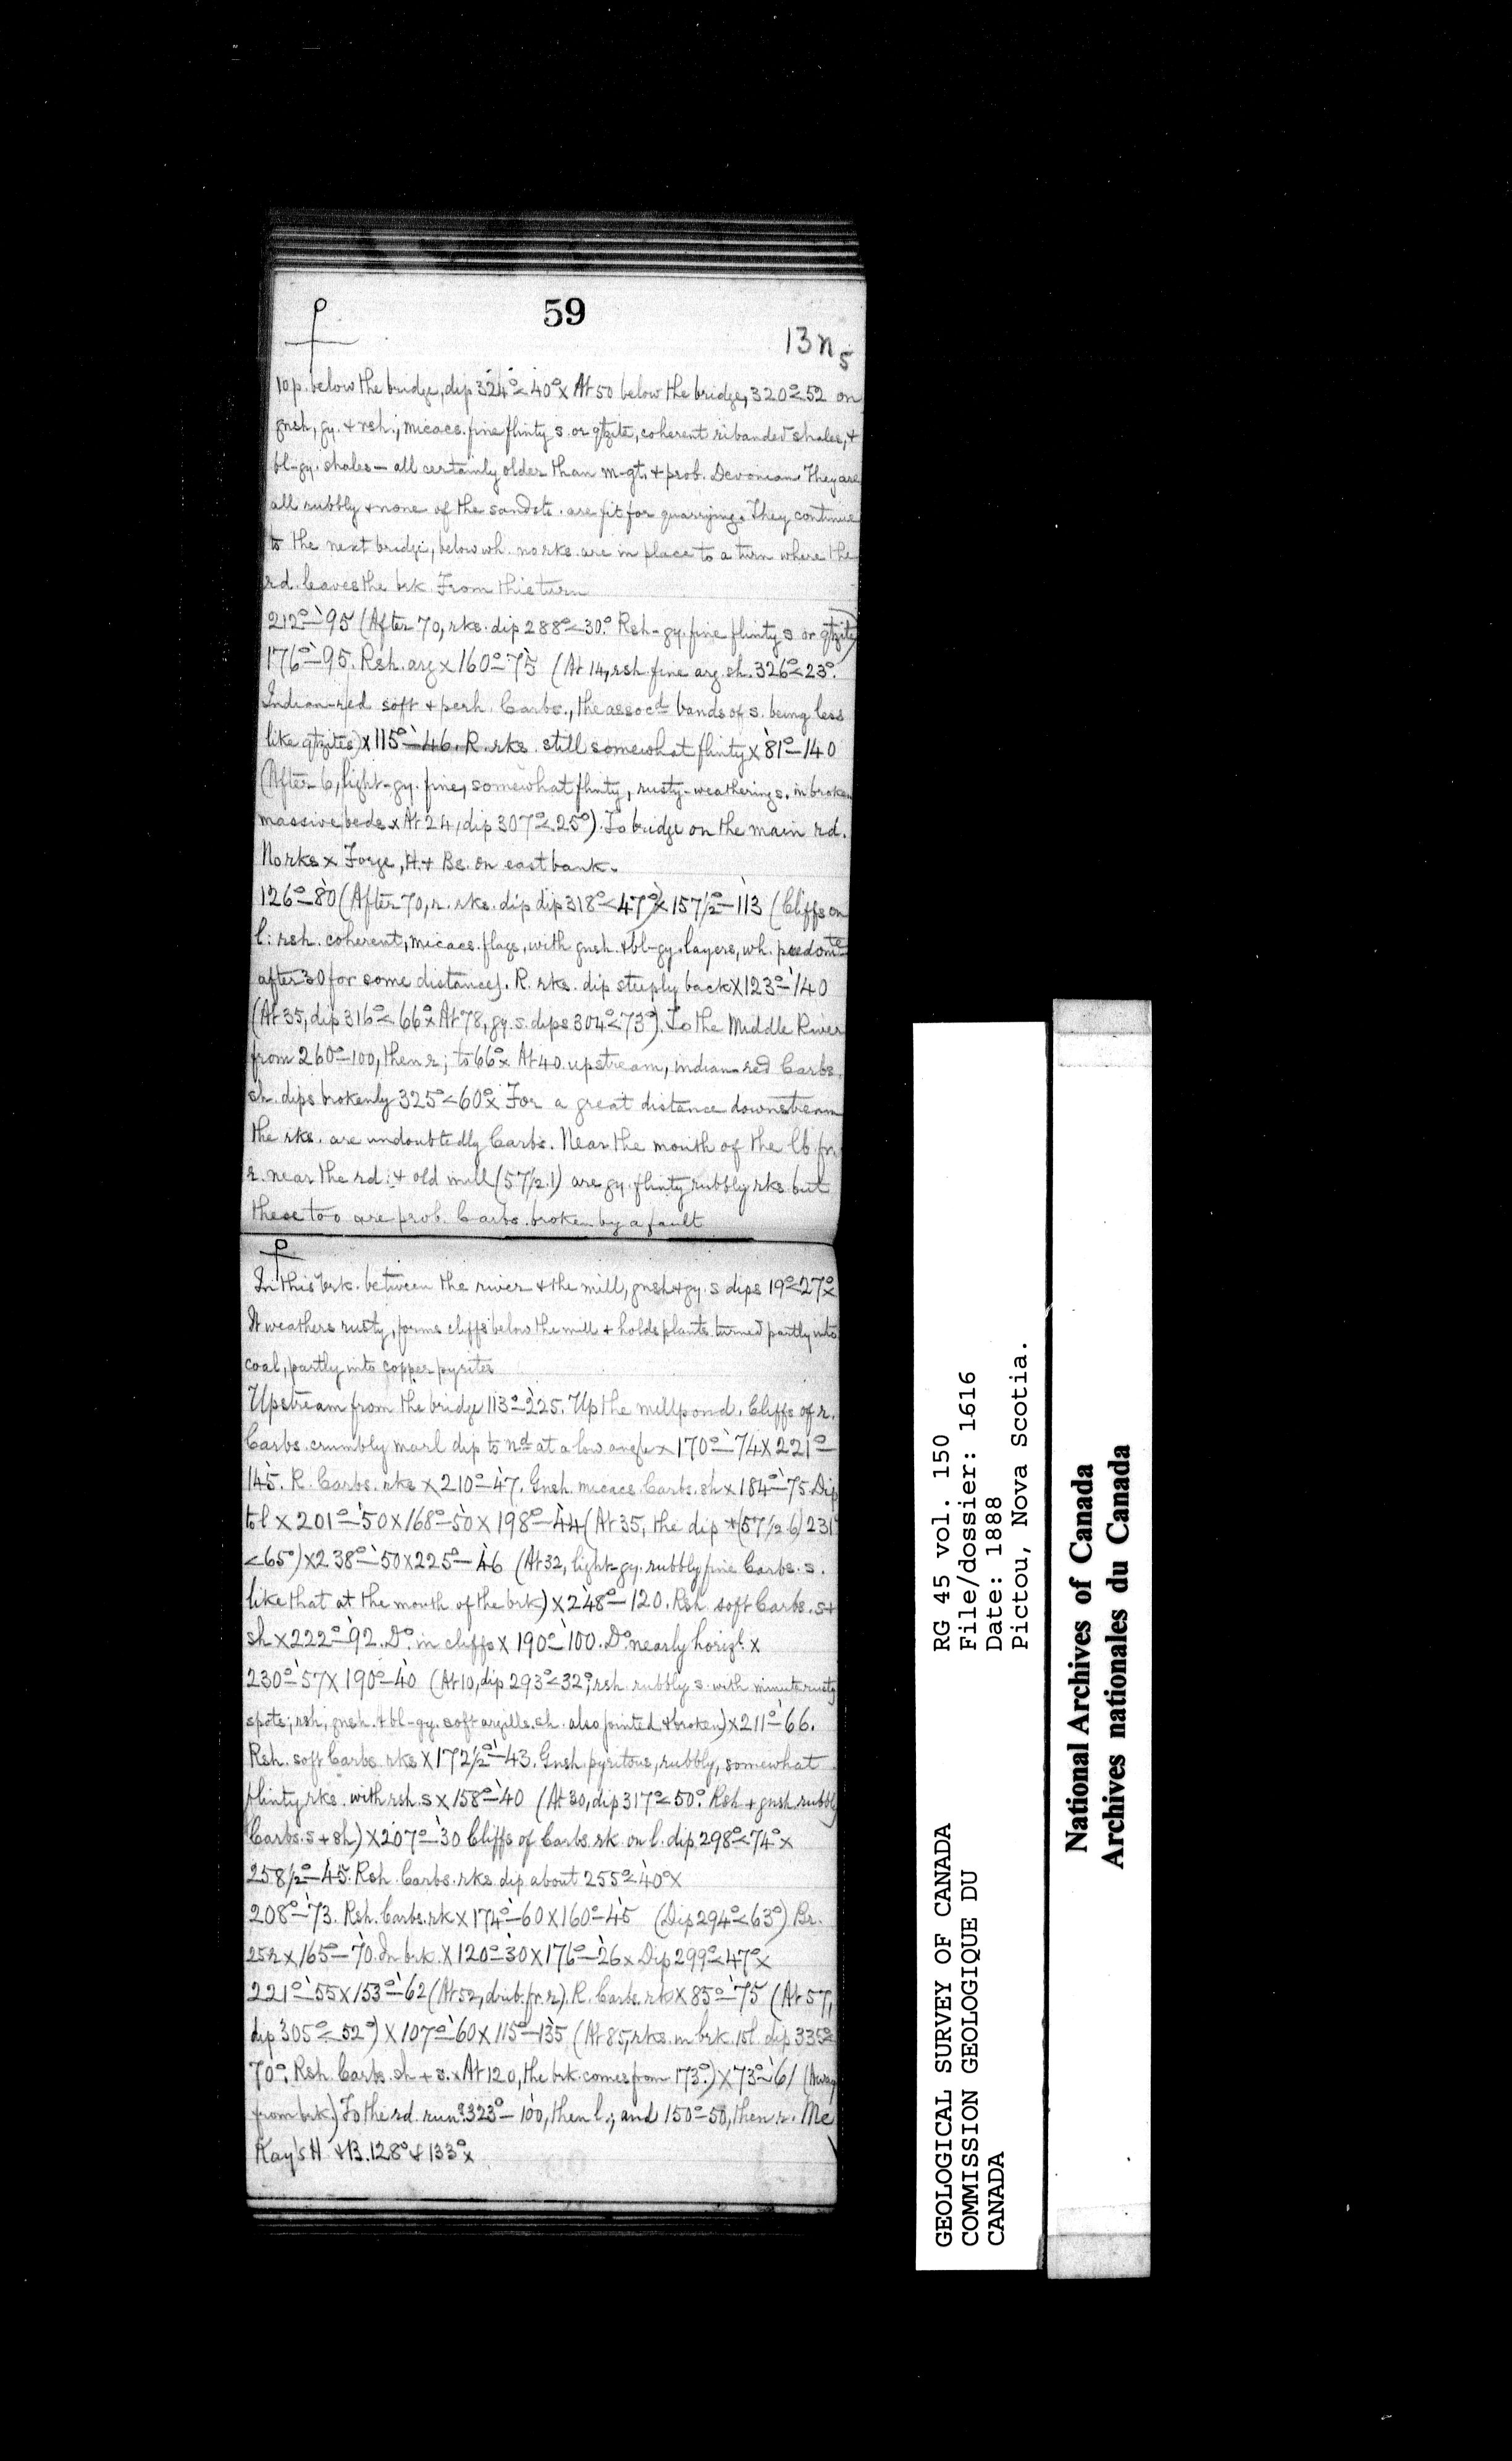 59
13 n 5
10 p. below the bridge, dip 324°<40° x At 50 below the bridge, 320°<52 on
gnsh, gy. + rsh., micacs. fine flinty s. or qtzite, coherent ribanded shales, +
bl-gy. shales — all certainly older than m-gt. + prob. Devonian. They are
all rubbly + none of the sandsts. are fit for quarrying. They continue
to the next bridge, below wh. no rks. are in place to a turn where the
rd. leaves the brk. From this turn
212°–95 (After 70, rks. dip 288°<30°. Rsh-gy. fine flinty s. or qtzite)
176°–95. Rsh. arg x 160°–75 (At 14, rsh. fine arg. sh. 326°<23°.
Indian-red soft + perh. Carbs., the assocd. bands of s. being less
like qtzites) x 115°–46. R. rks. still somewhat flinty x 81°–140
(After 6, light-gy. fine, somewhat flinty, rusty-weathering s. in broken
massive beds x At 24, dip 307°<25°). To bridge on the main rd.
No rks x Forge, H. + Bs. on east bank.
126°–80 (After 70, r. rks. dip dip 318°<47°) x 157½°–113 (Cliffs on
l: rsh. coherent, micacs. flags, with gnsh. + bl-gy. layers, wh. predomte
after 30 for some distance). R. rks. dip steeply back x 123°–140
(At 35, dip 316°<66° x At 78, gy. s. dips 304°<73°). To the Middle River
from 260°–100, then r; to 66° x At 40 upstream, indian-red Carbs.
sh. dips brokenly 325°<60° x For a great distance downstream
the rks. are undoubtedly Carbs. Near the mouth of the lb fr.
r. near the rd. + old mill (57½.1) are gy. flinty rubbly rks but
these too are prob. Carbs. broken by a fault
In this brk. between the river + the mill, gnsh + gy. s dips 19°<27° x
It weathers rusty, forms cliffs below the mill + holds plants turned partly into
coal, partly into copper pyrites
Upstream from the bridge 113°–225. Up the millpond. Cliffs of r.
Carbs. crumbly marl dip to nd. at a low angle x 170°–74 x 221°–
145. R. Carbs. rks x 210°–47. Gnsh. micacs. Carbs. sh x 184°–75 Dip
to l x 201°–50 x 168°–50 x 198°–44 (At 35, the dip + (57½.6) 231°
<65°) x 238°–50 x 225°–46 (At 32, light-gy. rubbly fine Carbs. s.
like that at the mouth of the brk) x 248°–120. Rsh. soft Carbs. s +
sh x 222°–92. Do. in cliffs x 190°–100. Do. nearly horizl. x
230°–57 x 190°–40 (At 10, dip 293°<32°; rsh. rubbly s. with minute rusty
spots; rsh, gnsh. + bl-gy. soft argills. sh. also jointed + broken) x 211°–66.
Rsh. soft Carbs. rks x 172½°–43. Gnsh. pyritous, rubbly, somewhat
flinty rks. with rsh. s x 158°–40 (At 30, dip 317°<50°. Rsh + gnsh rubbly
Carbs. s + sh) x 207°–30 Cliffs of Carbs. rk on l. dip 298°<74° x
258½°–45. Rsh. Carbs. rks dip about 255°<40° x
208°–73. Rsh. Carbs. rk x 174°–60 x 160°–45 (Dip 294°<63°) Br.
25 r x 165°–70. In brk. x 120°–30 x 176°–26 x Dip 299°<47° x
221°–55 x 153°–62 (At 52, fr. r). R. Carbs. rk x 85°–75 (At 57,
dip 305°<52°) x 107°–60 x 115°–135 (At 85, rks. in brk. 15l. dip 335°<
70°. Rsh. Carbs. sh + s. x At 120, the brk comes from 173°.) x 73°–61 (Away
from brk.) To the rd. runs 323°–100, then l.; and 150°–50, then r. Mc
Kay's H + B. 128° & 133° x
GEOLOGICAL SURVEY OF CANADA
COMMISSION GEOLOGIQUE DU
CANADA
RG 45 vol. 150
File/dossier: 1616
Date: 1888
Pictou, Nova Scotia.
National Archives of Canada
Archives nationales du Canada